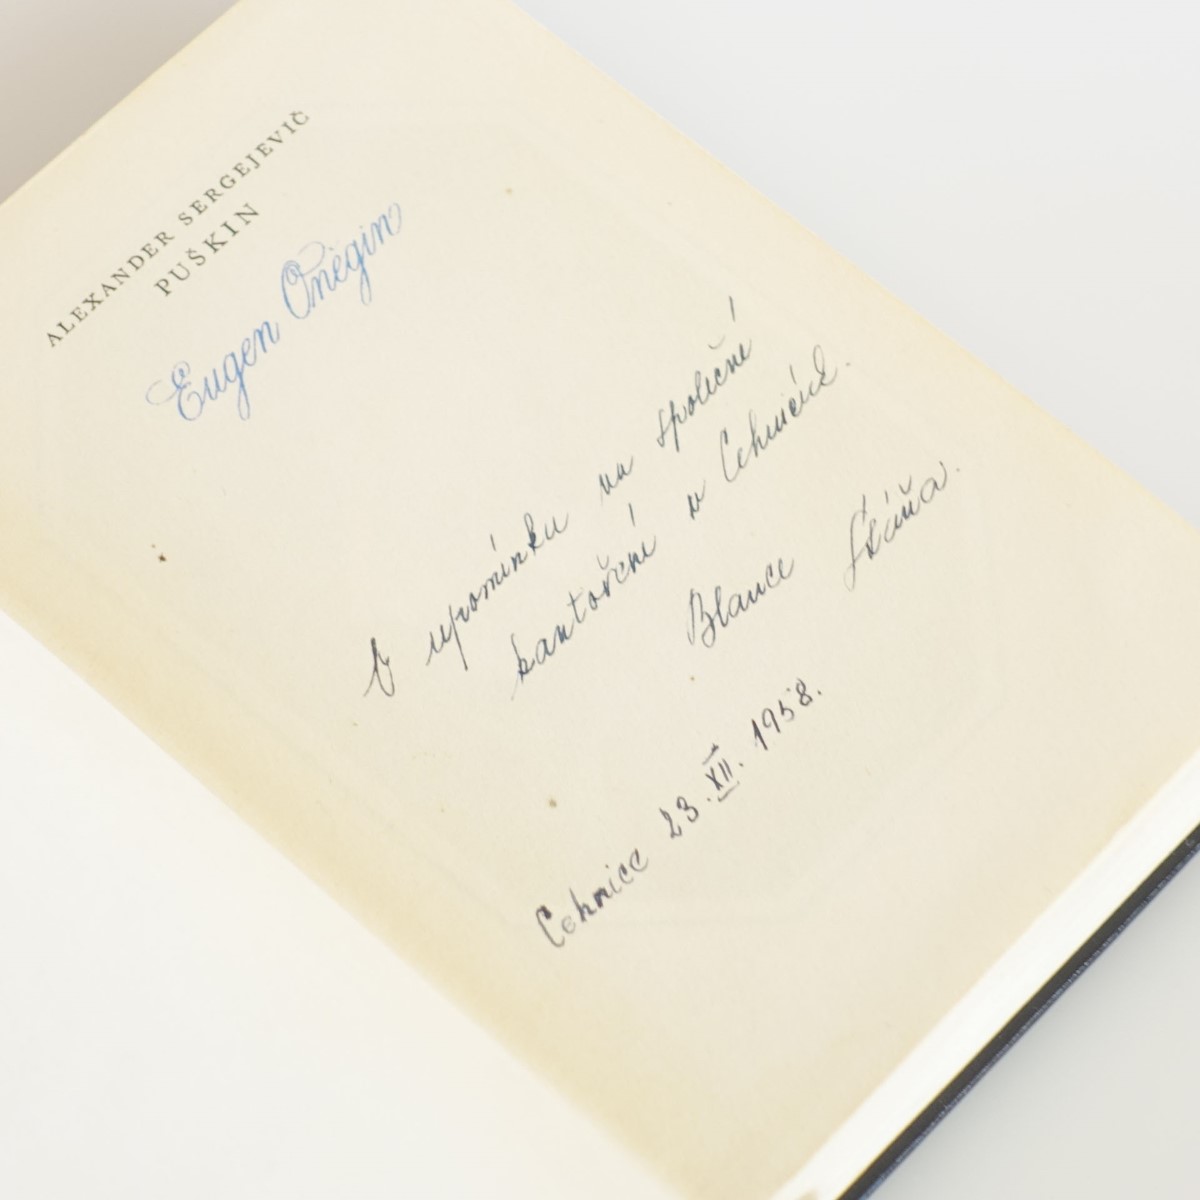 ALEXANDER SERGEJEVIČ
PUŠKIN
Eugen Oněgin
V upomínku na společné
kantoření v Cehnicích.
Blance Stáňa.
Cehnice 23. XII. 1958.